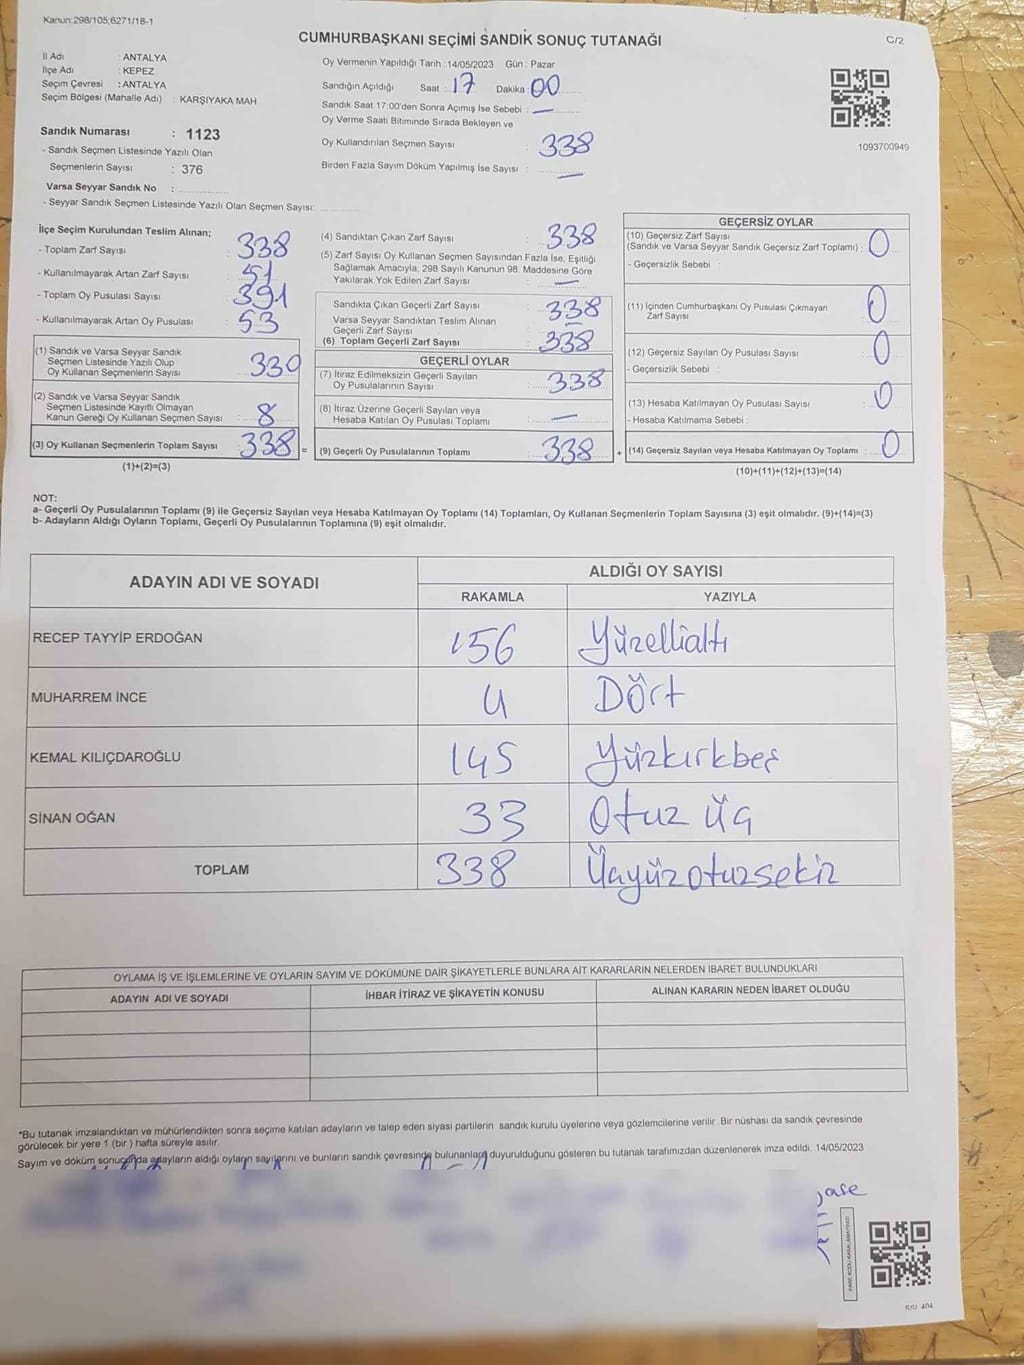 Kanun:298/105;6271/18-1
C/2
CUMHURBAŞKANI SEÇİMİ SANDIK SONUÇ TUTANAĞI
İl Adı : ANTALYA
İlçe Adı : KEPEZ
Seçim Çevresi : ANTALYA
Seçim Bölgesi (Mahalle Adı) : KARŞIYAKA MAH
Sandık Numarası : 1123
- Sandık Seçmen Listesinde Yazılı Olan
Seçmenlerin Sayısı : 376
Varsa Seyyar Sandık No :
- Seyyar Sandık Seçmen Listesinde Yazılı Olan Seçmen Sayısı:
Oy Vermenin Yapıldığı Tarih : 14/05/2023 Gün : Pazar
Sandığın Açıldığı Saat : 17 Dakika : 00
Sandık Saat 17:00'den Sonra Açımış İse Sebebi : —
Oy Verme Saati Bitiminde Sırada Bekleyen ve
Oy Kullandırılan Seçmen Sayısı : 338
Birden Fazla Sayım Döküm Yapılmış İse Sayısı : —
1093700949
İlçe Seçim Kurulundan Teslim Alınan;
- Toplam Zarf Sayısı : 338
- Kullanılmayarak Artan Zarf Sayısı : 51
- Toplam Oy Pusulası Sayısı : 391
- Kullanılmayarak Artan Oy Pusulası : 53
(1) Sandık ve Varsa Seyyar Sandık
Seçmen Listesinde Yazılı Olup
Oy Kullanan Seçmenlerin Sayısı : 330
(2) Sandık ve Varsa Seyyar Sandık
Seçmen Listesinde Kayıtlı Olmayan
Kanun Gereği Oy Kullanan Seçmen Sayısı : 8
(3) Oy Kullanan Seçmenlerin Toplam Sayısı : 338 =
(1)+(2)=(3)
(4) Sandıktan Çıkan Zarf Sayısı : 338
(5) Zarf Sayısı Oy Kullanan Seçmen Sayısından Fazla İse, Eşitliği
Sağlamak Amacıyla; 298 Sayılı Kanunun 98. Maddesine Göre
Yakılarak Yok Edilen Zarf Sayısı : —
Sandıkta Çıkan Geçerli Zarf Sayısı : 338
Varsa Seyyar Sandıktan Teslim Alınan
Geçerli Zarf Sayısı : —
(6) Toplam Geçerli Zarf Sayısı : 338
GEÇERLİ OYLAR
(7) İtiraz Edilmeksizin Geçerli Sayılan
Oy Pusulalarının Sayısı : 338
(8) İtiraz Üzerine Geçerli Sayılan veya
Hesaba Katılan Oy Pusulası Toplamı : —
(9) Geçerli Oy Pusulalarının Toplamı : 338 +
GEÇERSİZ OYLAR
(10) Geçersiz Zarf Sayısı
(Sandık ve Varsa Seyyar Sandık Geçersiz Zarf Toplamı) : 0
- Geçersizlik Sebebi :
(11) İçinden Cumhurbaşkanı Oy Pusulası Çıkmayan
Zarf Sayısı : 0
(12) Geçersiz Sayılan Oy Pusulası Sayısı : 0
- Geçersizlik Sebebi :
(13) Hesaba Katılmayan Oy Pusulası Sayısı : 0
- Hesaba Katılmama Sebebi :
(14) Geçersiz Sayılan veya Hesaba Katılmayan Oy Toplamı : 0
(10)+(11)+(12)+(13)=(14)
NOT:
a- Geçerli Oy Pusulalarının Toplamı (9) ile Geçersiz Sayılan veya Hesaba Katılmayan Oy Toplamı (14) Toplamları, Oy Kullanan Seçmenlerin Toplam Sayısına (3) eşit olmalıdır. (9)+(14)=(3)
b- Adayların Aldığı Oyların Toplamı, Geçerli Oy Pusulalarının Toplamına (9) eşit olmalıdır.
ADAYIN ADI VE SOYADI
ALDIĞI OY SAYISI
RAKAMLA YAZIYLA
RECEP TAYYİP ERDOĞAN 156 Yüzellialtı
MUHARREM İNCE 4 Dört
KEMAL KILIÇDAROĞLU 145 Yüzkırkbeş
SİNAN OĞAN 33 Otuz üç
TOPLAM 338 Üçyüzotuzsekiz
OYLAMA İŞ VE İŞLEMLERİNE VE OYLARIN SAYIM VE DÖKÜMÜNE DAİR ŞİKAYETLERLE BUNLARA AİT KARARLARIN NELERDEN İBARET BULUNDUKLARI
ADAYIN ADI VE SOYADI İHBAR İTİRAZ VE ŞİKAYETİN KONUSU ALINAN KARARIN NEDEN İBARET OLDUĞU
*Bu tutanak imzalandıktan ve mühürlendikten sonra seçime katılan adayların ve talep eden siyasi partilerin sandık kurulu üyelerine veya gözlemcilerine verilir. Bir nüshası da sandık çevresinde
görülecek bir yere 1 (bir) hafta süreyle asılır.
Sayım ve döküm sonucunda adayların aldığı oyların sayılarını ve bunların sandık çevresinde bulunanlara duyurulduğunu gösteren bu tutanak tarafımızdan düzenlenerek imza edildi. 14/05/2023